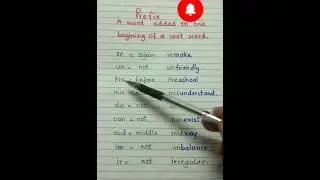 Prefix
A word added to the
begining of a root word.
re = again remake
un = not unfriendly
Pre = before Preschool
mis not misunderstand.
dis = not
non = not nonexist
mid = middle midway
im = not imbalance
ir = not irregular.